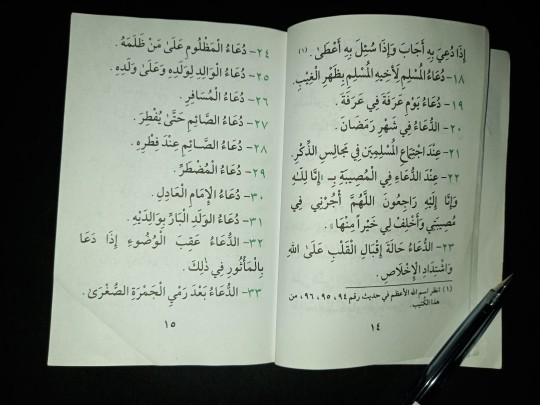 إِذَا دُعِيَ بِهِ أَجَابَ وَإِذَا سُئِلَ بِهِ أَعْطَىٰ . (١)
١٨- دُعَاءُ الْمُسْلِمِ لِأَخِيهِ الْمُسْلِمِ بِظَهْرِ الْغَيْبِ.
١٩- دُعَاءُ يَوْمِ عَرَفَةَ فِي عَرَفَةَ .
٢٠- الدُّعَاءُ فِي شَهْرِ رَمَضَانَ .
٢١- عِنْدَ اجْتِمَاعِ الْمُسْلِمِينَ فِي مَجَالِسِ الذِّكْرِ.
٢٢- عِنْدَ الدُّعَاءِ فِي الْمُصِيبَةِ بِـ «إِنَّا لِلَّهِ
وَإِنَّا إِلَيْهِ رَاجِعُونَ اللَّهُمَّ أْجُرْنِي فِي
مُصِيبَتِي وَأَخْلِفْ لِي خَيْراً مِنْهَا» .
٢٣- الدُّعَاءُ حَالَةَ إِقْبَالِ الْقَلْبِ عَلَىٰ اللهِ
وَاشْتِدَادِ الْإِخْلَاصِ.
(١) انظر اسم الله الأعظم في حديث رقم ٩٤، ٩٥، ٩٦، من
هذا الكُتيب.
١٤
٢٤- دُعَاءُ الْمَظْلُومِ عَلَىٰ مَنْ ظَلَمَهُ .
٢٥- دُعَاءُ الْوَالِدِ لِوَلَدِهِ وَعَلَىٰ وَلَدِهِ .
٢٦- دُعَاءُ الْمُسَافِرِ .
٢٧- دُعَاءُ الصَّائِمِ حَتَّىٰ يُفْطِرَ .
٢٨- دُعَاءُ الصَّائِمِ عِنْدَ فِطْرِهِ .
٢٩- دُعَاءُ الْمُضْطَرِّ .
٣٠- دُعَاءُ الْإِمَامِ الْعَادِلِ .
٣١- دُعَاءُ الْوَلَدِ الْبَارِّ بِوَالِدَيْهِ .
٣٢- الدُّعَاءُ عَقِبَ الْوُضُوءِ إِذَا دَعَا
بِالْمَأْثُورِ فِي ذَٰلِكَ .
٣٣- الدُّعَاءُ بَعْدَ رَمْيِ الْجَمْرَةِ الصُّغْرَىٰ .
١٥